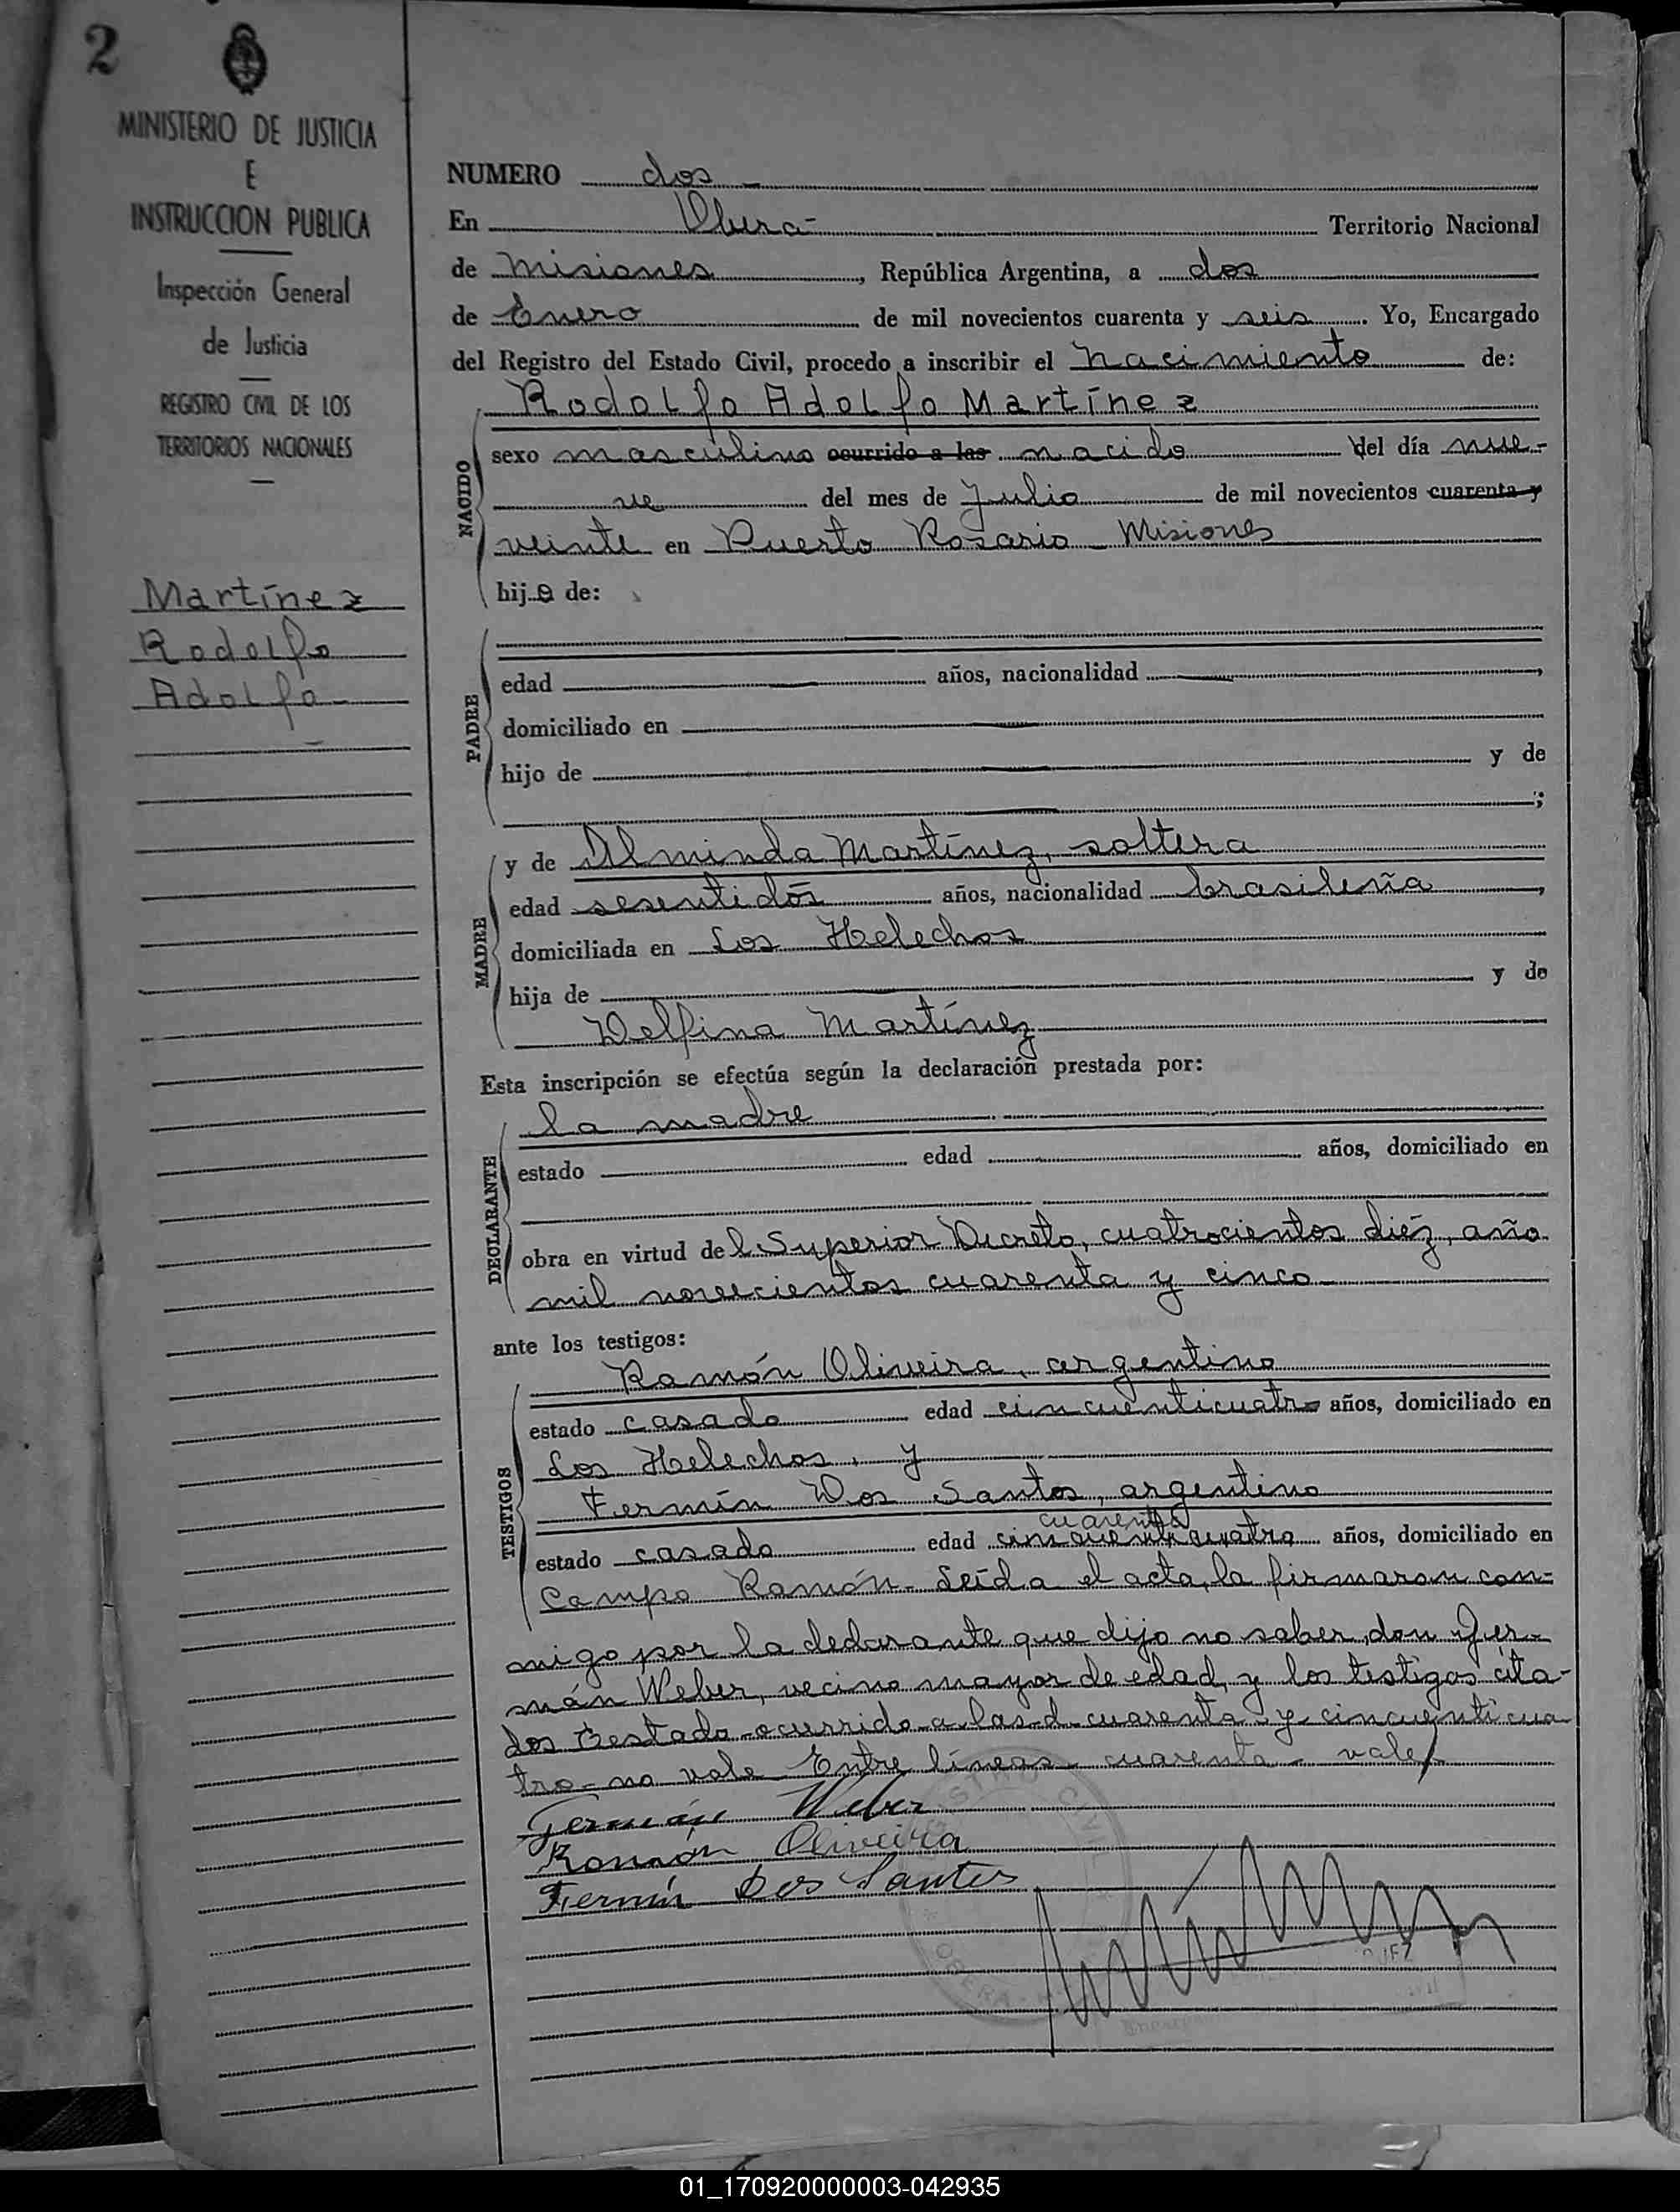 2
MINISTERIO DE JUSTICIA
E
INSTRUCCION PUBLICA
Inspección General
de Justicia
REGISTRO CIVIL DE LOS
TERRITORIOS NACIONALES
Martínez
Rodolfo
Adolfo
NUMERO dos
En Oberá Territorio Nacional
de Misiones, República Argentina, a dos
de Enero de mil novecientos cuarenta y seis. Yo, Encargado
del Registro del Estado Civil, procedo a inscribir el nacimiento de:
NACIDO
Rodolfo Adolfo Martínez
sexo masculino ocurrido a las nacido del día nue-
ve del mes de Julio de mil novecientos cuarenta y
veinte en Puerto Rosario Misiones
hijo de:
PADRE
edad años, nacionalidad ,
domiciliado en
hijo de y de
;
MADRE
y de Alminda Martínez, soltera
edad sesentidós años, nacionalidad brasileña,
domiciliada en Los Helechos
hija de y de
Delfina Martínez
Esta inscripción se efectúa según la declaración prestada por:
DECLARANTE
la madre
estado edad años, domiciliado en
obra en virtud del Superior Decreto, cuatrocientos diéz, año
mil novecientos cuarenta y cinco
ante los testigos:
TESTIGOS
Ramón Oliveira, argentino
estado casado edad cincuenticuatro años, domiciliado en
Los Helechos, y
Fermín Dos Santos, argentino
cuarenta
estado casado edad cincuenticuatro años, domiciliado en
Campo Ramón. Leída el acta, la firmaron con-
migo por la declarante que dijo no saber, don Ger-
mán Weber, vecino mayor de edad, y los testigos cita-
dos Testado-ocurrido a las-d-cuarenta y-cincuenticua-
tro-no vale Entre líneas-cuarenta-vale
Germán Weber
Ramón Oliveira
Fermín Dos Santos
REGISTRO CIVIL
OBERA
01_170920000003-042935